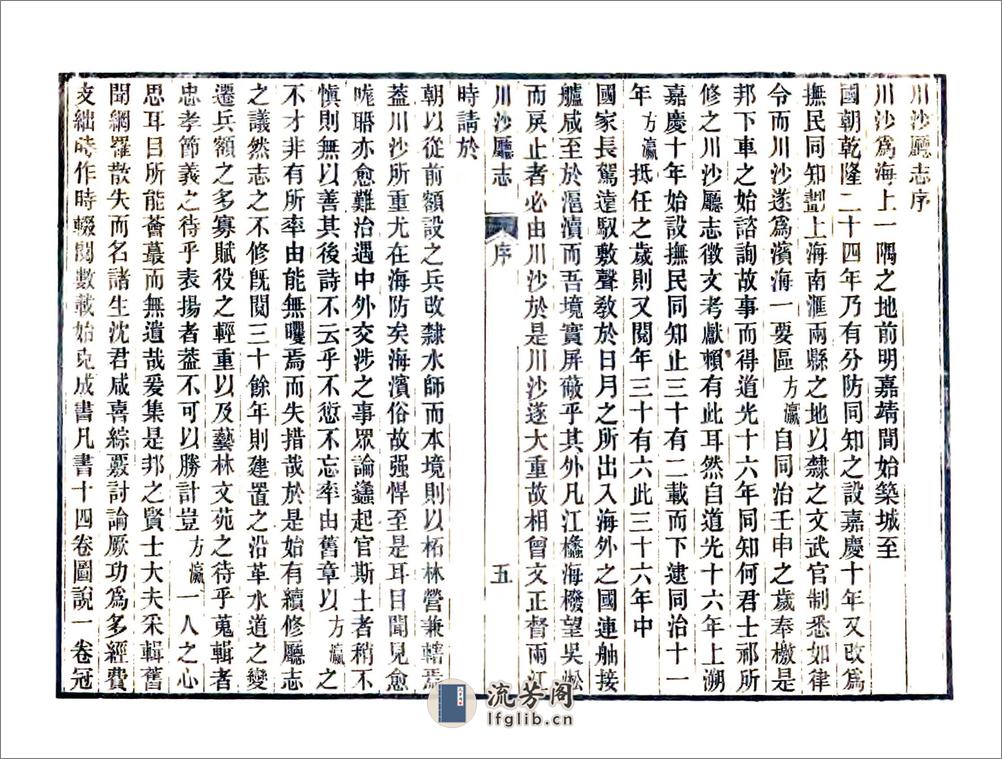 川沙廳志序
川沙爲海上一隅之地前明嘉靖間始築城至
國朝乾隆二十四年乃有分防同知之設嘉慶十年又改爲
撫民同知劃上海南滙兩縣之地以隸之文武官制悉如律
令而川沙遂爲濱海一要區方瀛自同治壬申之歲奉檄是
邦下車之始諮詢故事而得道光十六年同知何君士祁所
修之川沙廳志徵文考獻賴有此耳然自道光十六年上溯
嘉慶十年始設撫民同知止三十有二載而下逮同治十一
年方瀛抵任之歲則又閱年三十有六此三十六年中
國家長駕遠馭敷聲敎於日月之所出入海外之國連舳接
艫咸至於滬瀆而吾境實屏蔽乎其外凡江檥海橃望吳淞
而戾止者必由川沙於是川沙遂大重故相曾文正督兩江
川沙廳志
序
五
時請於
朝以從前額設之兵改隸水師而本境則以柘林營兼轄焉
葢川沙所重尤在海防矣海濱俗故强悍至是耳目聞見愈
咙聒亦愈難治遇中外交涉之事眾論蠭起官斯土者稍不
愼則無以善其後詩不云乎不愆不忘率由舊章以方瀛之
不才非有所率由能無矍焉而失措哉於是始有續修廳志
之議然志之不修旣閱三十餘年則建置之沿革水道之變
遷兵額之多寡賦役之輕重以及藝林文苑之待乎蒐輯者
忠孝節義之待乎表揚者葢不可以勝計豈方瀛一人之心
思耳目所能薈蕞而無遺哉爰集是邦之賢士大夫采輯舊
聞網羅散失而名諸生沈君咸喜綜覈討論厥功爲多經費
支絀時作時輟閱數載始克成書凡書十四卷圖說一卷冠
流芳阁
lfglib.cn